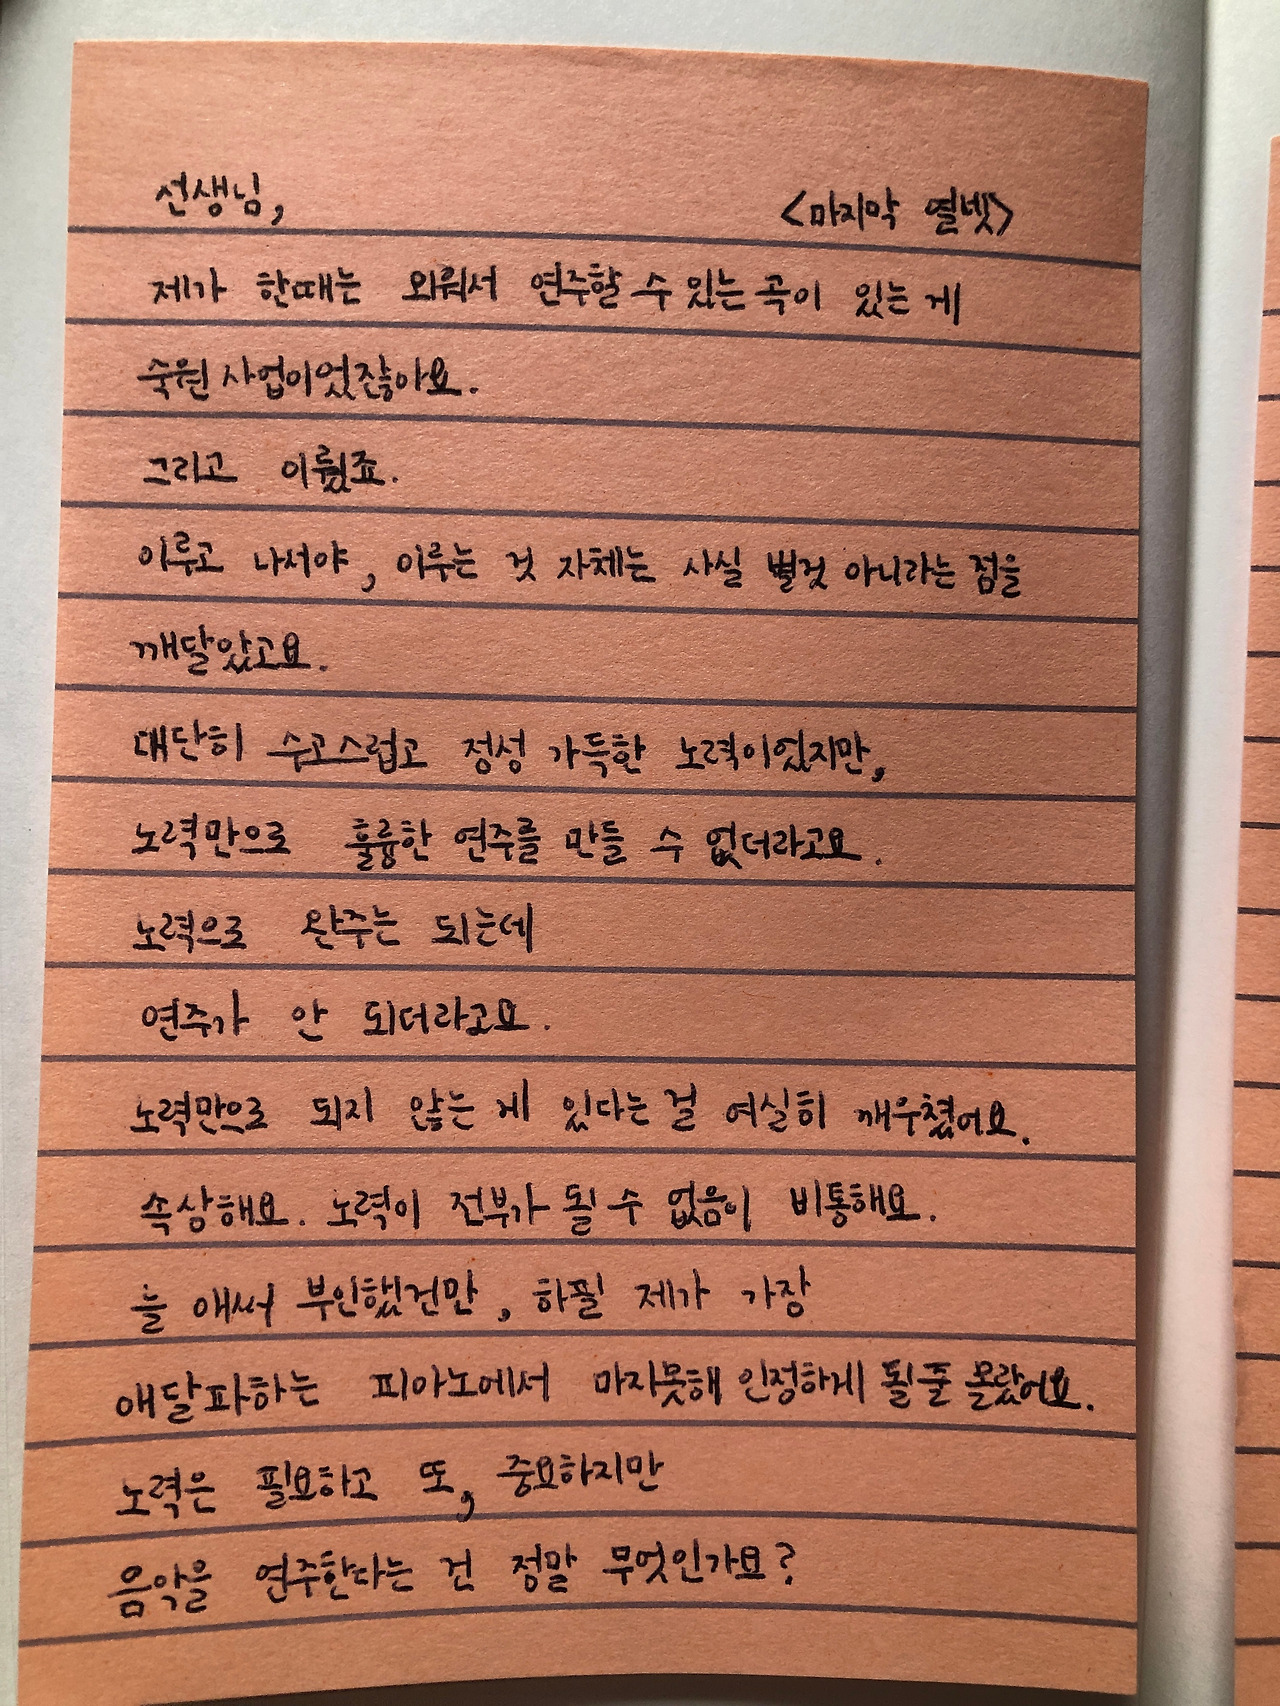 선생님, <마지막 열넷>
제가 한때는 외워서 연주할 수 있는 곡이 있는 게
숙원 사업이었잖아요.
그리고 이뤘죠.
이루고 나서야, 이루는 것 자체는 사실 별것 아니라는 점을
깨달았고요.
대단히 수고스럽고 정성 가득한 노력이었지만,
노력만으로 훌륭한 연주를 만들 수 없더라고요.
노력으로 완주는 되는데
연주가 안 되더라고요.
노력만으로 되지 않는 게 있다는 걸 여실히 깨우쳤어요.
속상해요. 노력이 전부가 될 수 없음이 비통해요.
늘 애써 부인했건만, 하필 제가 가장
애달파하는 피아노에서 마지못해 인정하게 될 줄 몰랐어요.
노력은 필요하고 또, 중요하지만
음악을 연주한다는 건 정말 무엇인가요?